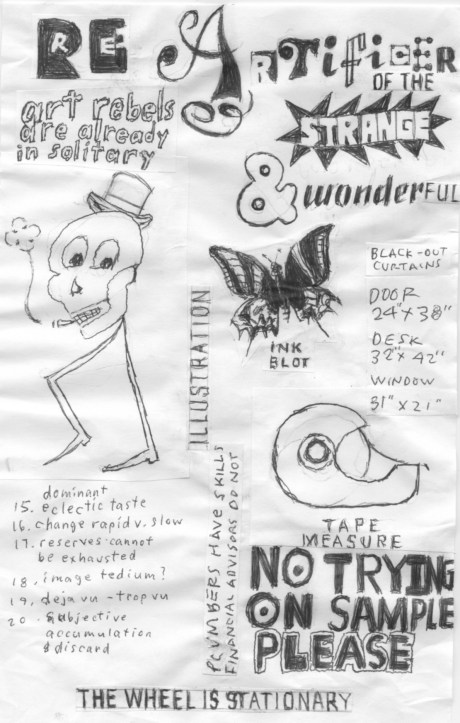 RE:
ARTIFICER
OF THE
STRANGE
& wonderFUL
art rebels
are already
in solitary
ILLUSTRATION
INK
BLOT
BLACK-OUT
CURTAINS
DOOR
24" X 38"
DESK
32" X 42"
WINDOW
31" X 21"
TAPE
MEASURE
dominant
15. eclectic taste
16. change rapid v. slow
17. reserves cannot
be exhausted
18. image tedium?
19. deja vu - trop vu
20. subjective
accumulation
& discard
PLUMBERS HAVE SKILLS
FINANCIAL ADVISORS DO NOT
NO TRYING
ON SAMPLE
PLEASE
THE WHEEL IS STATIONARY